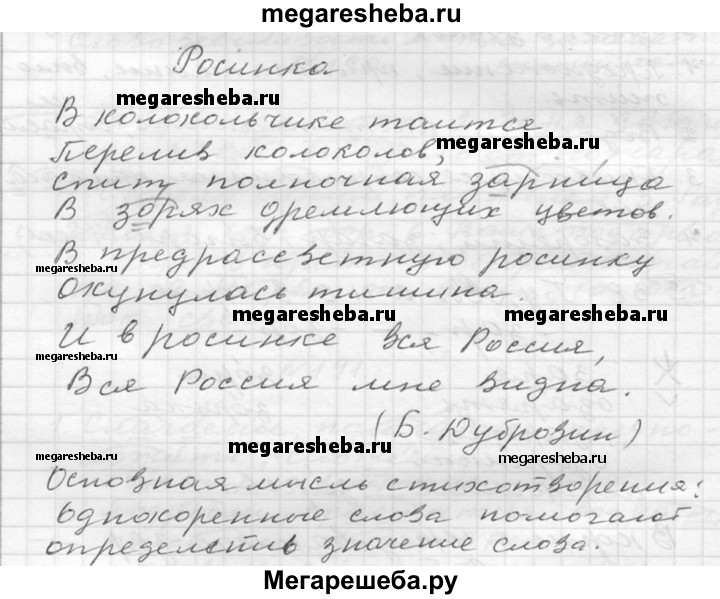 megaresheba.ru
Росинка
megaresheba.ru
В колокольчике таится
megaresheba.ru
Перелив колоколов,
Спит полночная зарница
В зорях дремлющих цветов.
В предрассветную росинку
megaresheba.ru
Окунулась тишина.
megaresheba.ru megaresheba.ru
И в росинке вся Россия,
megaresheba.ru
Вся Россия мне видна.
(Б. Дубровин)
megaresheba.ru megaresheba.ru megaresheba.ru
Основная мысль стихотворения:
однокоренные слова помогают
определить значение слова.
Мегарешеба.ру